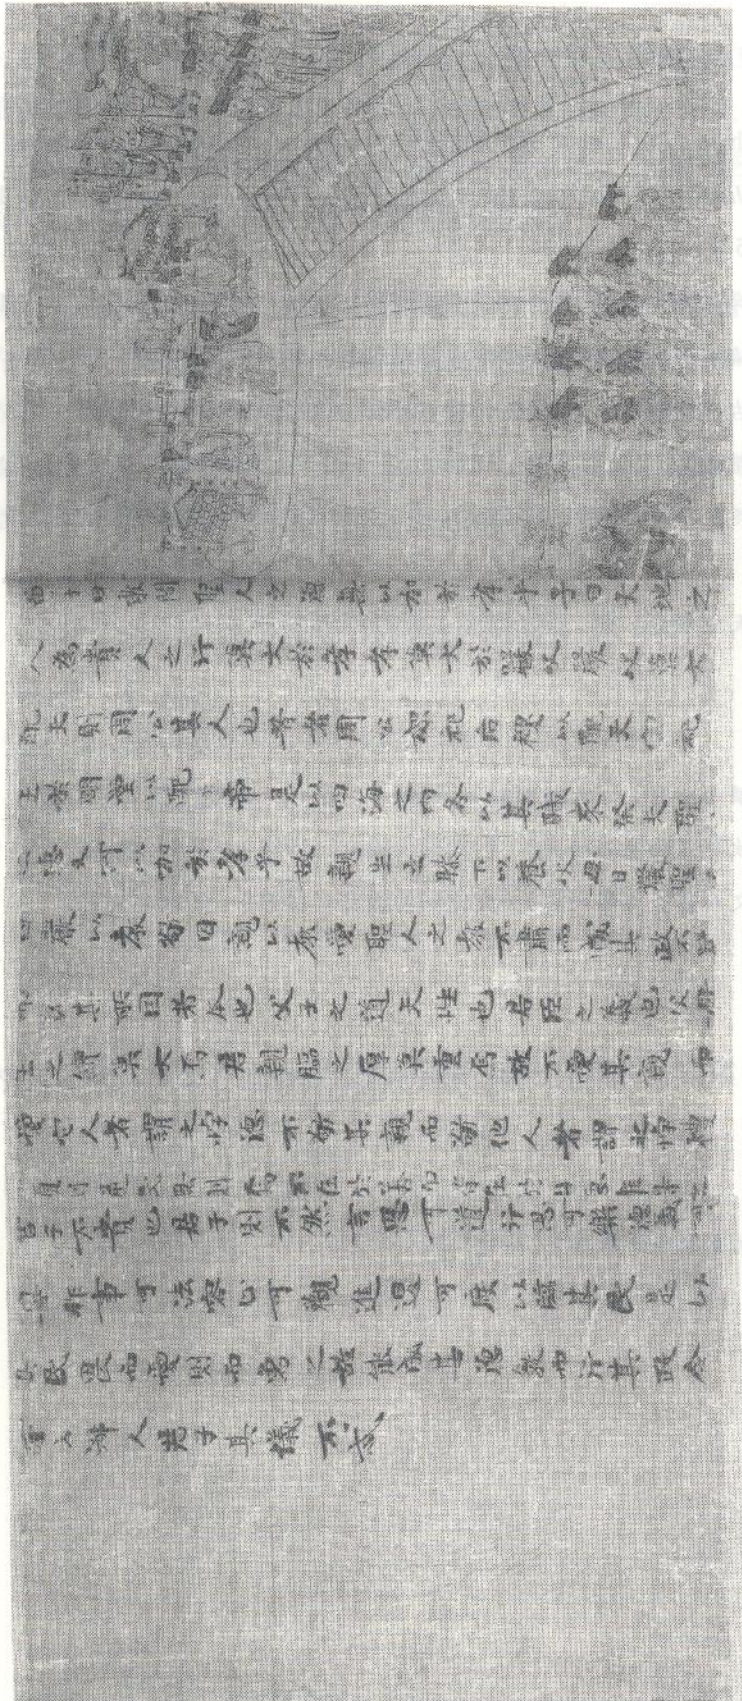 曾子曰敢問聖人之德無以加於孝乎子曰天地之
人為貴人之行莫大於孝孝莫大於嚴父嚴父莫大
配天則周公其人也昔者周公郊祀后稷以配天宗祀
王於明堂以配上帝是以四海之內各以其職來祭夫聖
之德又何以加於孝乎故親生之膝下以養父母日嚴聖
以嚴以教敬因親以教愛聖人之教不肅而成其政不嚴
而治其所因者本也父子之道天性也君臣之義也父母
生之續莫大焉君親臨之厚莫重焉故不愛其親而
愛它人者謂之悖德不敬其親而敬他人者謂之悖禮
則逆民無則焉不在於善而皆在於凶德雖得之
君子不貴也君子則不然言思可道行思可樂德義可
尊作事可法容止可觀進退可度以臨其民是以
其民畏而愛則而象之故能成其德教而行其政令
詩云淑人君子其儀不忒